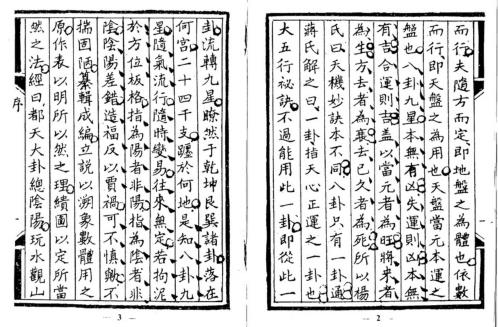 而行夫隨方而定即地盤之為體也依數
而行即天盤之為用也天盤當元本運之
盤也八卦九星本無有凶失運則凶本無
有吉合運則吉蓋以當元者為旺將來者
為生方去者為衰去已久者為死所以楊
氏曰天機妙訣本不同八卦只有一卦通
蔣氏解之曰一卦指天心正運之一卦也
大五行祕訣不過能用此一卦即從此一
— 2 —
卦流轉九星瞭然于乾坤艮巽諸卦落在
何宫二十四干支躔於何地是知八卦九
星隨氣流行隨時變易往來無定若拘泥
於方位板格指為陽者非陽指為陰者非
陰陰陽差錯造福反以賈禍可不慎歟不
揣固陋纂輯成編立說以溯象數體用之
原作表以明所以然之理繢圖以定所當
然之法經曰都天大卦總陰陽玩水觀山
序
— 3 —